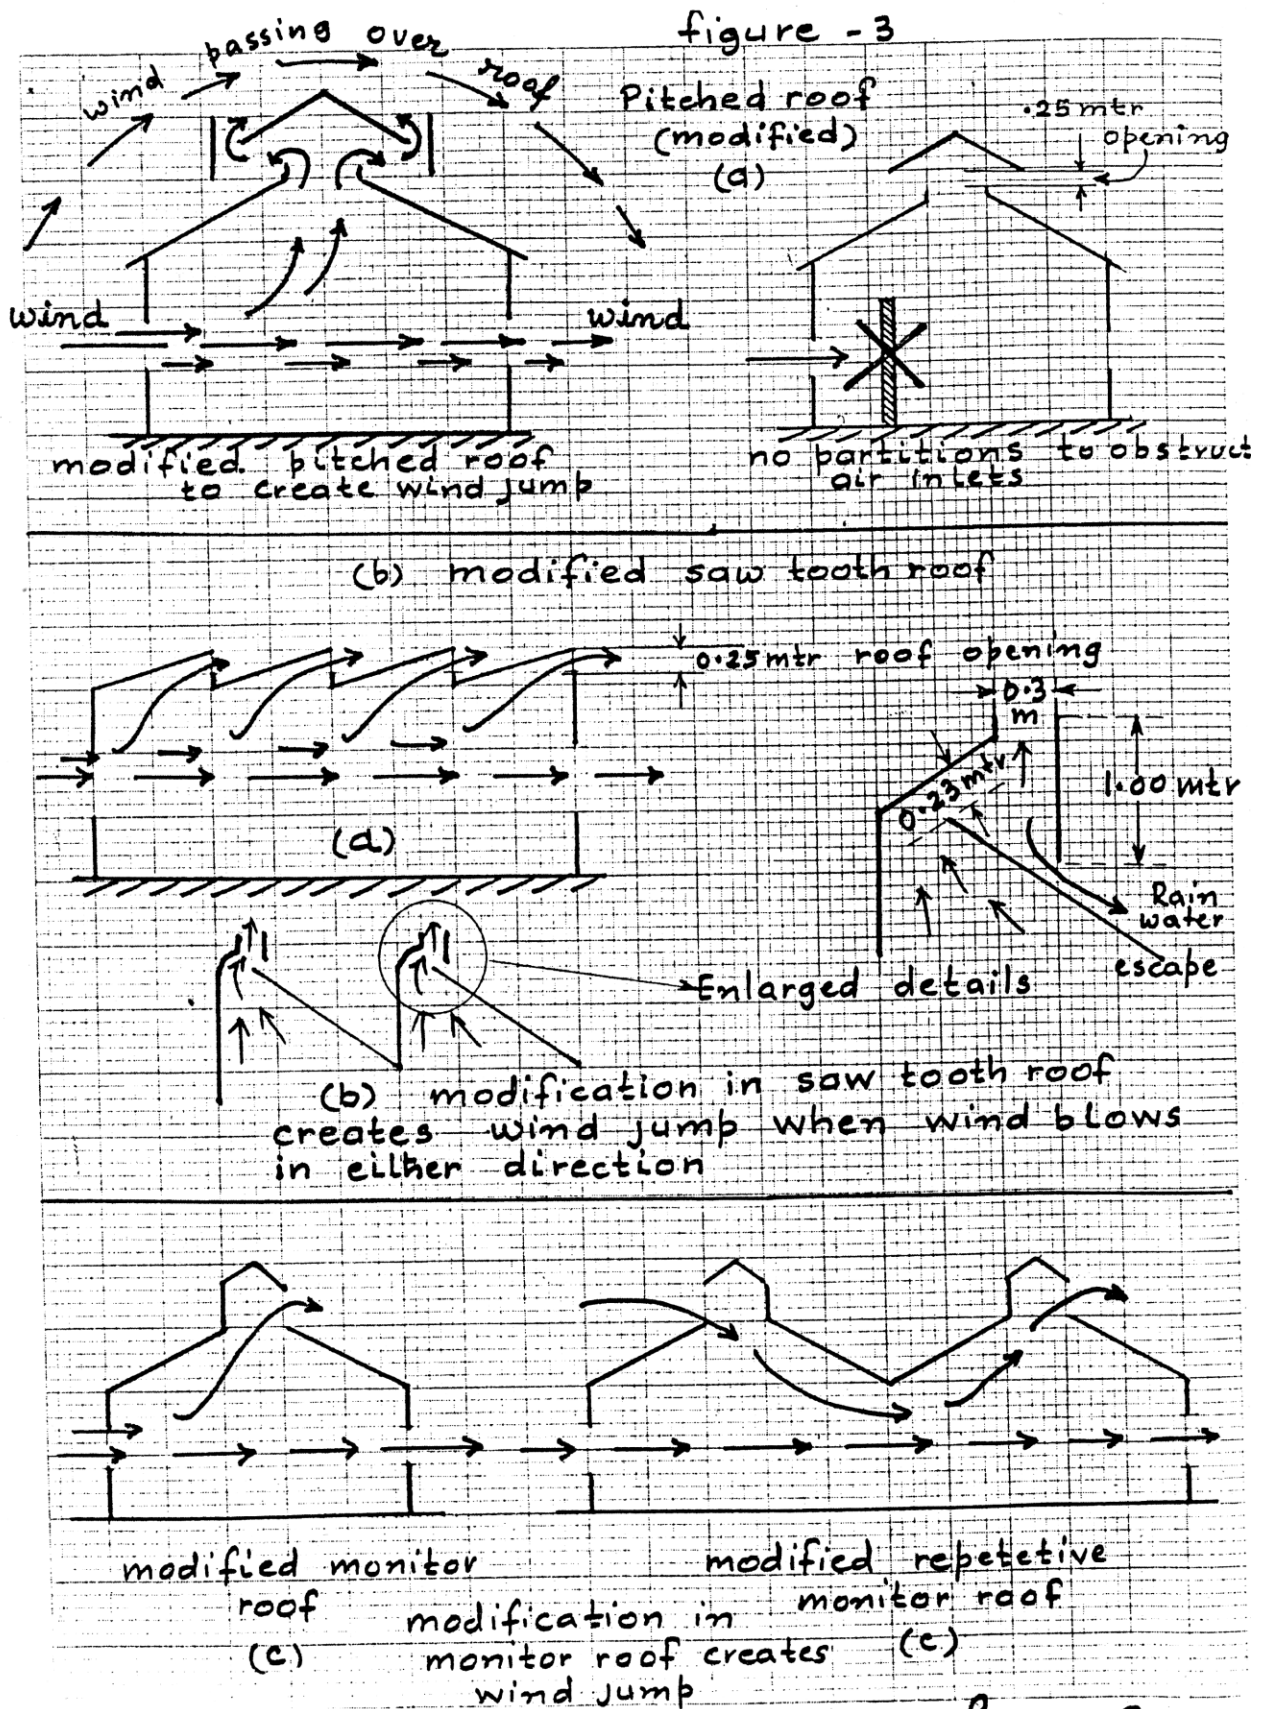 figure - 3
wind passing over roof
Pitched roof
(modified)
(a)
.25 mtr
opening
wind
wind
modified pitched roof
to create wind jump
no partitions to obstruct
air inlets
(b) modified saw tooth roof
0.25 mtr roof opening
0.3
m
0.23 mtr
1.00 mtr
(a)
Rain
water
escape
Enlarged details
(b) modification in saw tooth roof
creates wind jump when wind blows
in either direction
modified monitor
roof
(c)
modified repetetive
monitor roof
(c)
modification in
monitor roof creates
wind jump